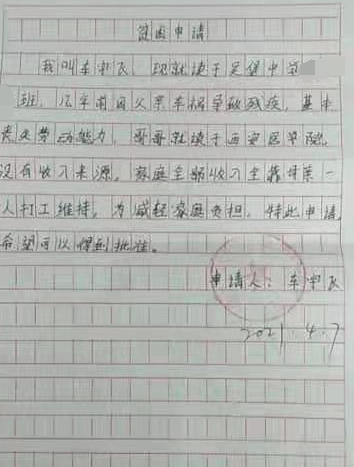 贫困申请
我叫车宇飞，现就读于吴堡中学
班，几年前因父亲车祸导致残疾，基本
丧失劳动能力，哥哥就读于西安医学院，
没有收入来源，家庭全部收入全靠母亲一
人打工维持，为减轻家庭负担，特此申请，
希望可以得到批准。
申请人：车宇飞
2021.4.7